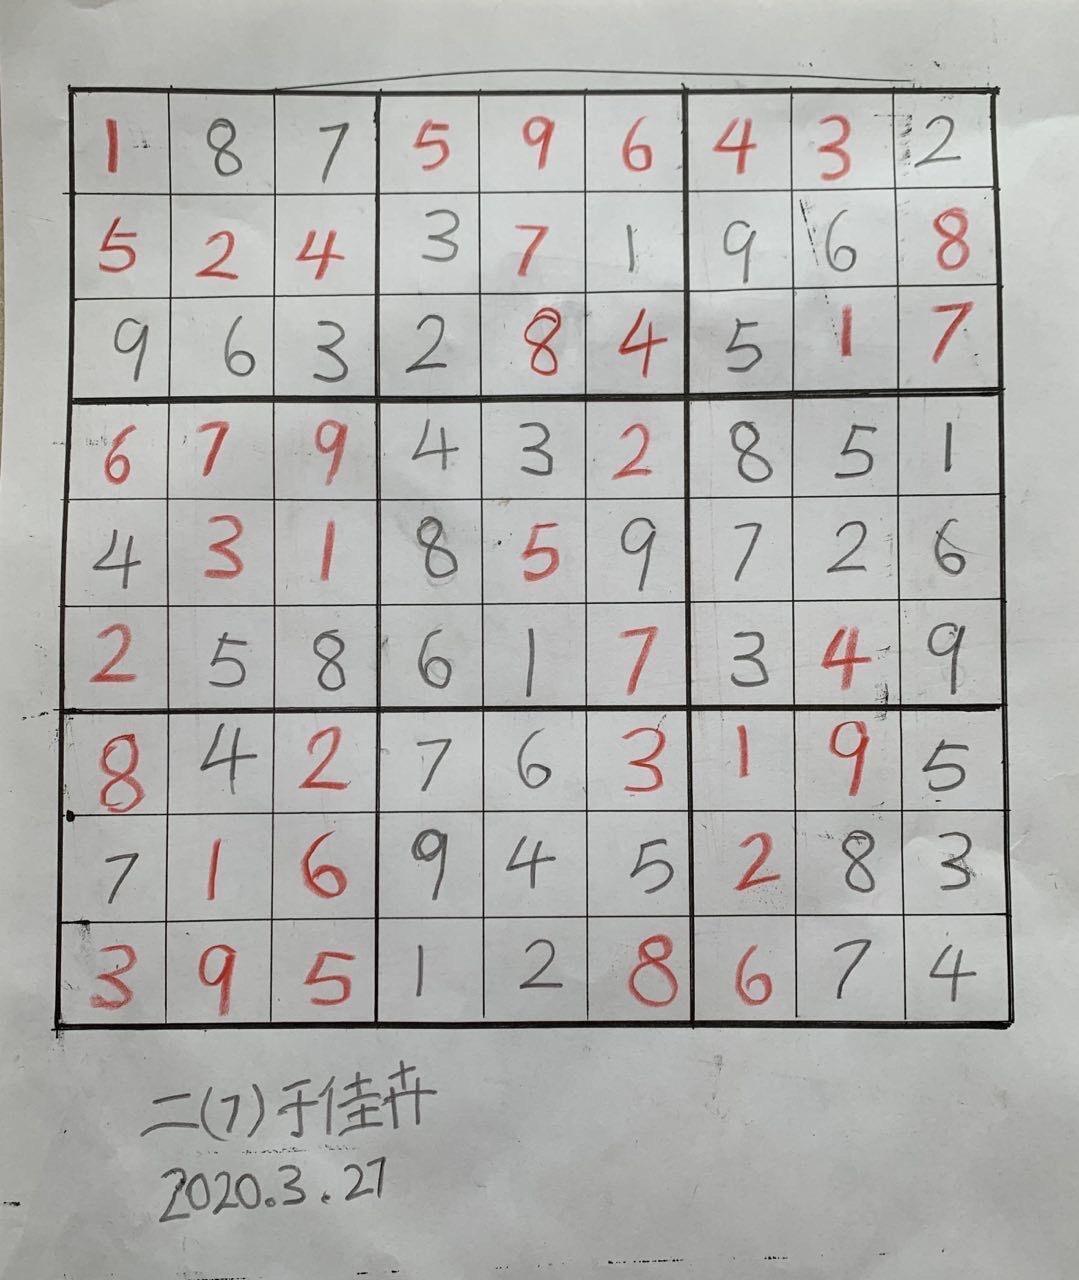 1 8 7 5 9 6 4 3 2
5 2 4 3 7 1 9 6 8
9 6 3 2 8 4 5 1 7
6 7 9 4 3 2 8 5 1
4 3 1 8 5 9 7 2 6
2 5 8 6 1 7 3 4 9
8 4 2 7 6 3 1 9 5
7 1 6 9 4 5 2 8 3
3 9 5 1 2 8 6 7 4
二(7)于佳卉
2020.3.27